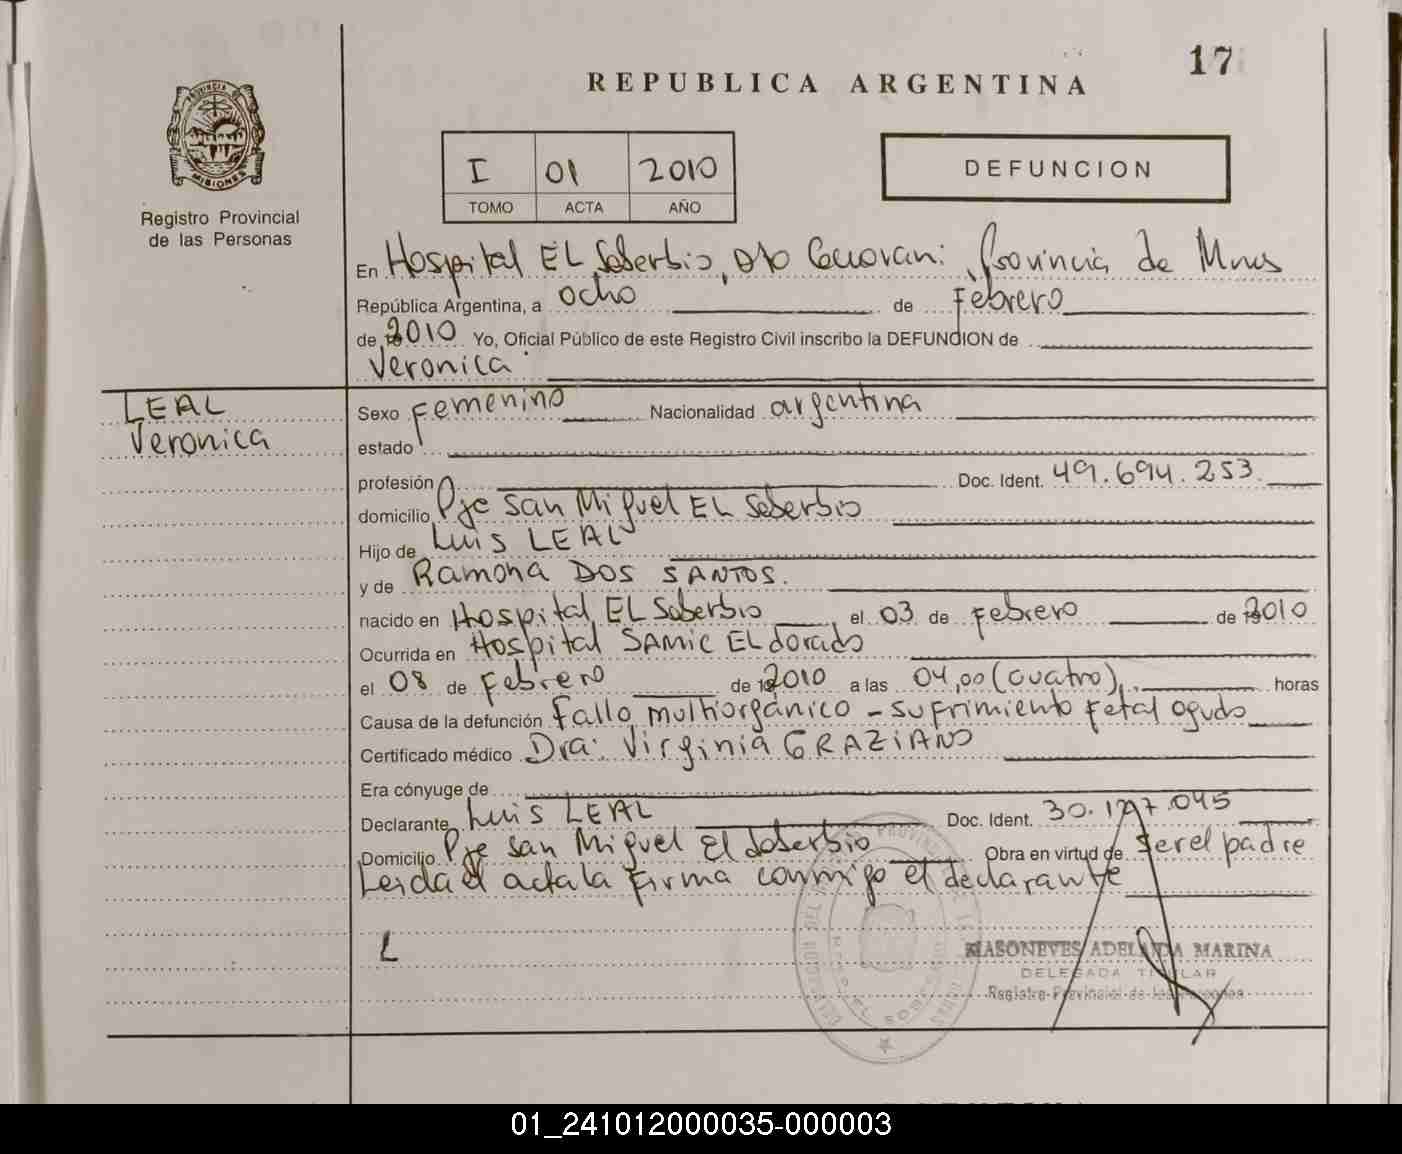 17
REPUBLICA ARGENTINA
PROVINCIA DE MISIONES
Registro Provincial
de las Personas
I 01 2010
TOMO ACTA AÑO
DEFUNCION
En Hospital EL Soberbio, Dto Guarani, Provincia de Mnes
República Argentina, a ocho de Febrero
de 2010 Yo, Oficial Público de este Registro Civil inscribo la DEFUNCION de
Veronica
LEAL
Veronica
Sexo Femenino Nacionalidad argentina
estado
profesión Doc. Ident. 49.694.253
domicilio Pje San Miguel EL Soberbio
Hijo de Luis LEAL
y de Ramona DOS SANTOS.
nacido en Hospital EL Soberbio el 03 de Febrero de 2010
Ocurrida en Hospital SAMIC ELdorado
el 08 de Febrero de 2010 a las 04,00 (cuatro) horas
Causa de la defunción Fallo multiorgánico - sufrimiento fetal agudo
Certificado médico Dra: Virginia GRAZIANO
Era cónyuge de
Declarante Luis LEAL Doc. Ident. 30.127.045
Domicilio Pje San Miguel El Soberbio Obra en virtud de ser el padre
Leida el acta la firma conmigo el declarante
L
MASONEVES ADELAIDA MARINA
DELEGADA TITULAR
Registro Provincial de las Personas
01_241012000035-000003